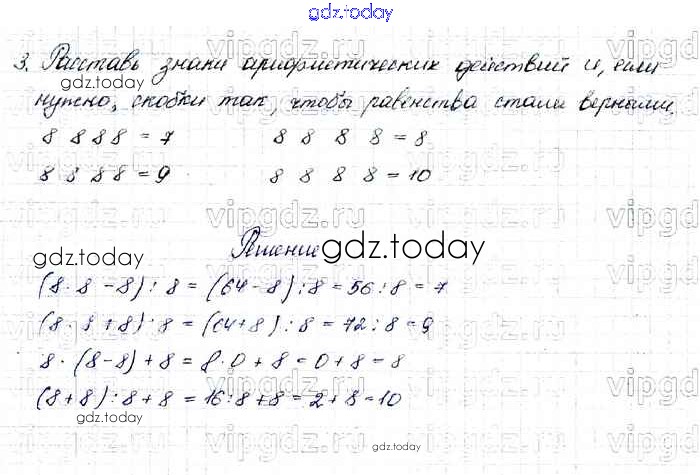 gdz.today
3. Расставь знаки арифметических действий и, если
нужно, скобки так, чтобы равенства стали верными.
8 8 8 8 = 7 8 8 8 8 = 8
8 8 8 8 = 9 8 8 8 8 = 10
Решение
(8 · 8 - 8) : 8 = (64 - 8) : 8 = 56 : 8 = 7
(8 · 8 + 8) : 8 = (64 + 8) : 8 = 72 : 8 = 9
8 · (8 - 8) + 8 = 8 · 0 + 8 = 0 + 8 = 8
(8 + 8) : 8 + 8 = 16 : 8 + 8 = 2 + 8 = 10
gdz.today
gdz.today
gdz.today
gdz.today
gdz.today
vipgdz.ru